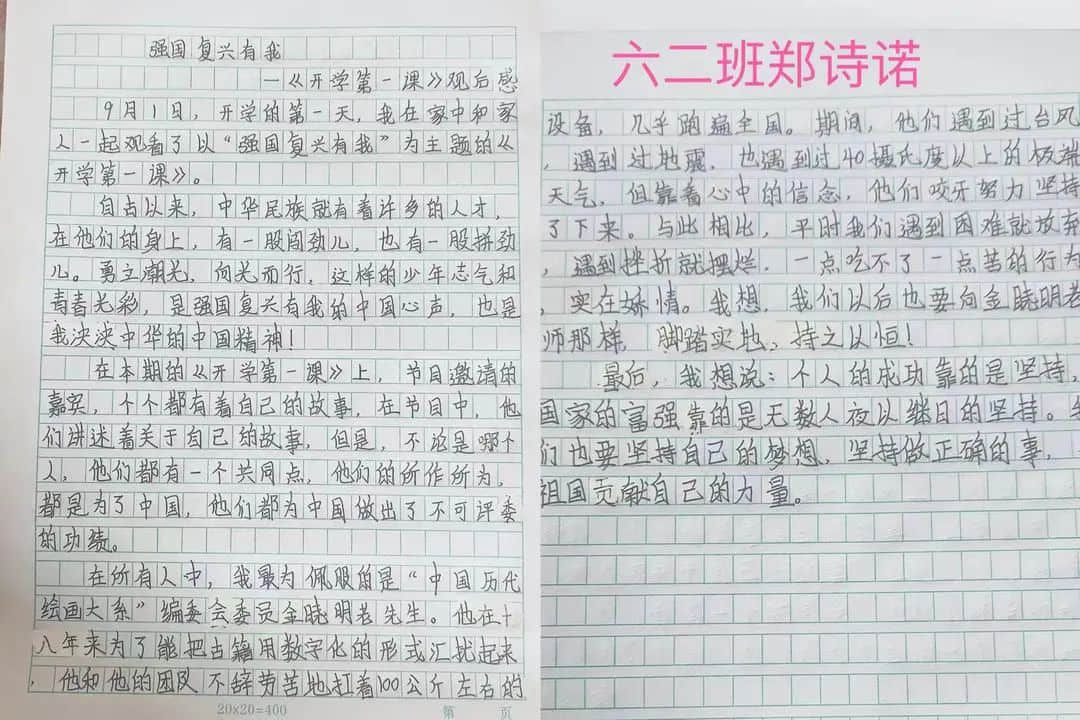 强国复兴有我
—《开学第一课》观后感
9月1日，开学的第一天，我在家中和家
人一起观看了以“强国复兴有我”为主题的《
开学第一课》。
自古以来，中华民族就有着许多的人才，
在他们的身上，有一股闯劲儿，也有一股拼劲
儿。勇立潮光，向光而行，这样的少年志气和
青春光彩，是强国复兴有我的中国心声，也是
我泱泱中华的中国精神！
在本期的《开学第一课》上，节目邀请的
嘉宾，个个都有着自己的故事，在节目中，他
们讲述着关于自己的故事，但是，不论是哪个
人，他们都有一个共同点，他们的所作所为，
都是为了中国，他们都为中国做出了不可评委
的功绩。
在所有人中，我最为佩服的是“中国历代
绘画大系”编委会委员金晓明老先生。他在十
八年来为了能把古籍用数字化的形式汇扰起来
，他和他的团队不辞劳苦地扛着100公斤左右的
20×20=400 第 页
六二班郑诗诺
设备，几乎跑遍全国。期间，他们遇到过台风
，遇到过地震，也遇到过40摄氏度以上的极端
天气，但靠着心中的信念，他们咬牙努力坚持
了下来。与此相比，平时我们遇到困难就放弃
，遇到挫折就摆烂，一点吃不了一点苦的行为
，实在娇情。我想，我们以后也要向金晓明老
师那样，脚踏实地，持之以恒！
最后，我想说：个人的成功靠的是坚持，
国家的富强靠的是无数人夜以继日的坚持。
们也要坚持自己的梦想，坚持做正确的事，
祖国贡献自己的力量。